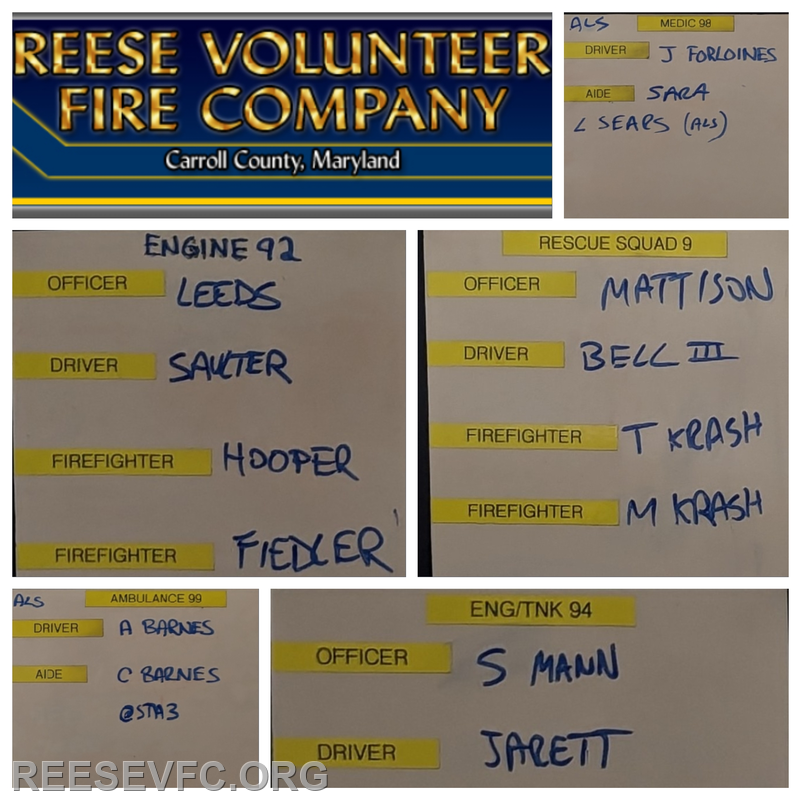 REESE VOLUNTEER
FIRE COMPANY
Carroll County, Maryland
ALS MEDIC 98
DRIVER J FORLOINES
AIDE SARA
L SEARS (ALS)
ENGINE 92
OFFICER LEEDS
DRIVER SAULTER
FIREFIGHTER HOOPER
FIREFIGHTER FIEDLER
RESCUE SQUAD 9
OFFICER MATTISON
DRIVER BELL III
FIREFIGHTER T KRASH
FIREFIGHTER M KRASH
ALS AMBULANCE 99
DRIVER A BARNES
AIDE C BARNES
@STA3
ENG/TNK 94
OFFICER S MANN
DRIVER JARETT
REESEVFC.ORG